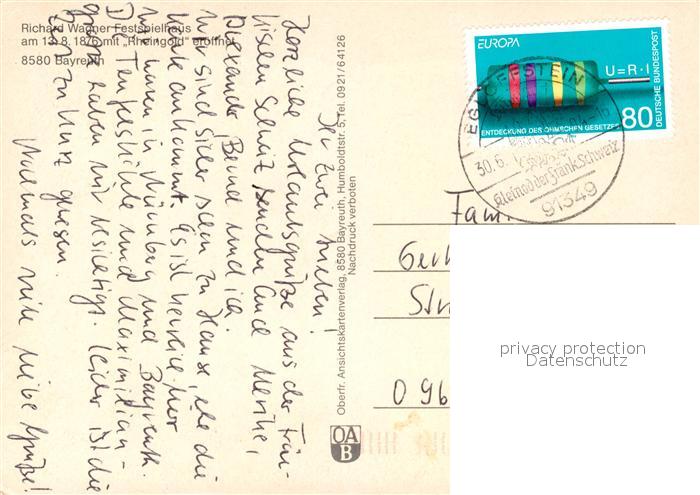 Richard Wagner Festspielhaus
am 13. 8. 1876 mit „Rheingold" eröffnet
8580 Bayreuth
Oberfr. Ansichtskartenverlag, 8580 Bayreuth, Humboldtstr. 5, Tel. 0921/64126
Nachdruck verboten
Herzliche Urlaubsgrüße aus der Frän-
kischen Schweiz senden Euch
Alexander Bernd und ich.
Wir sind sicher schon zu Hause, ehe die
Karte ankommt. Es ist herrlich hier
wir waren in Nürnberg und Bayreuth.
Die Teufelshöhle und Maximilian-
grotte haben wir besichtigt. Leider ist die
Zeit zu kurz gewesen.
Nochmals viele liebe Grüße!
EUROPA
U=R·I
ENTDECKUNG DES OHMSCHEN GESETZES
80
DEUTSCHE BUNDESPOST
EGLOFFSTEIN
30.6.
Kleinod der Fränk. Schweiz
91349
Fam.
Ger
Str
O 96
OA
B
privacy protection
Datenschutz